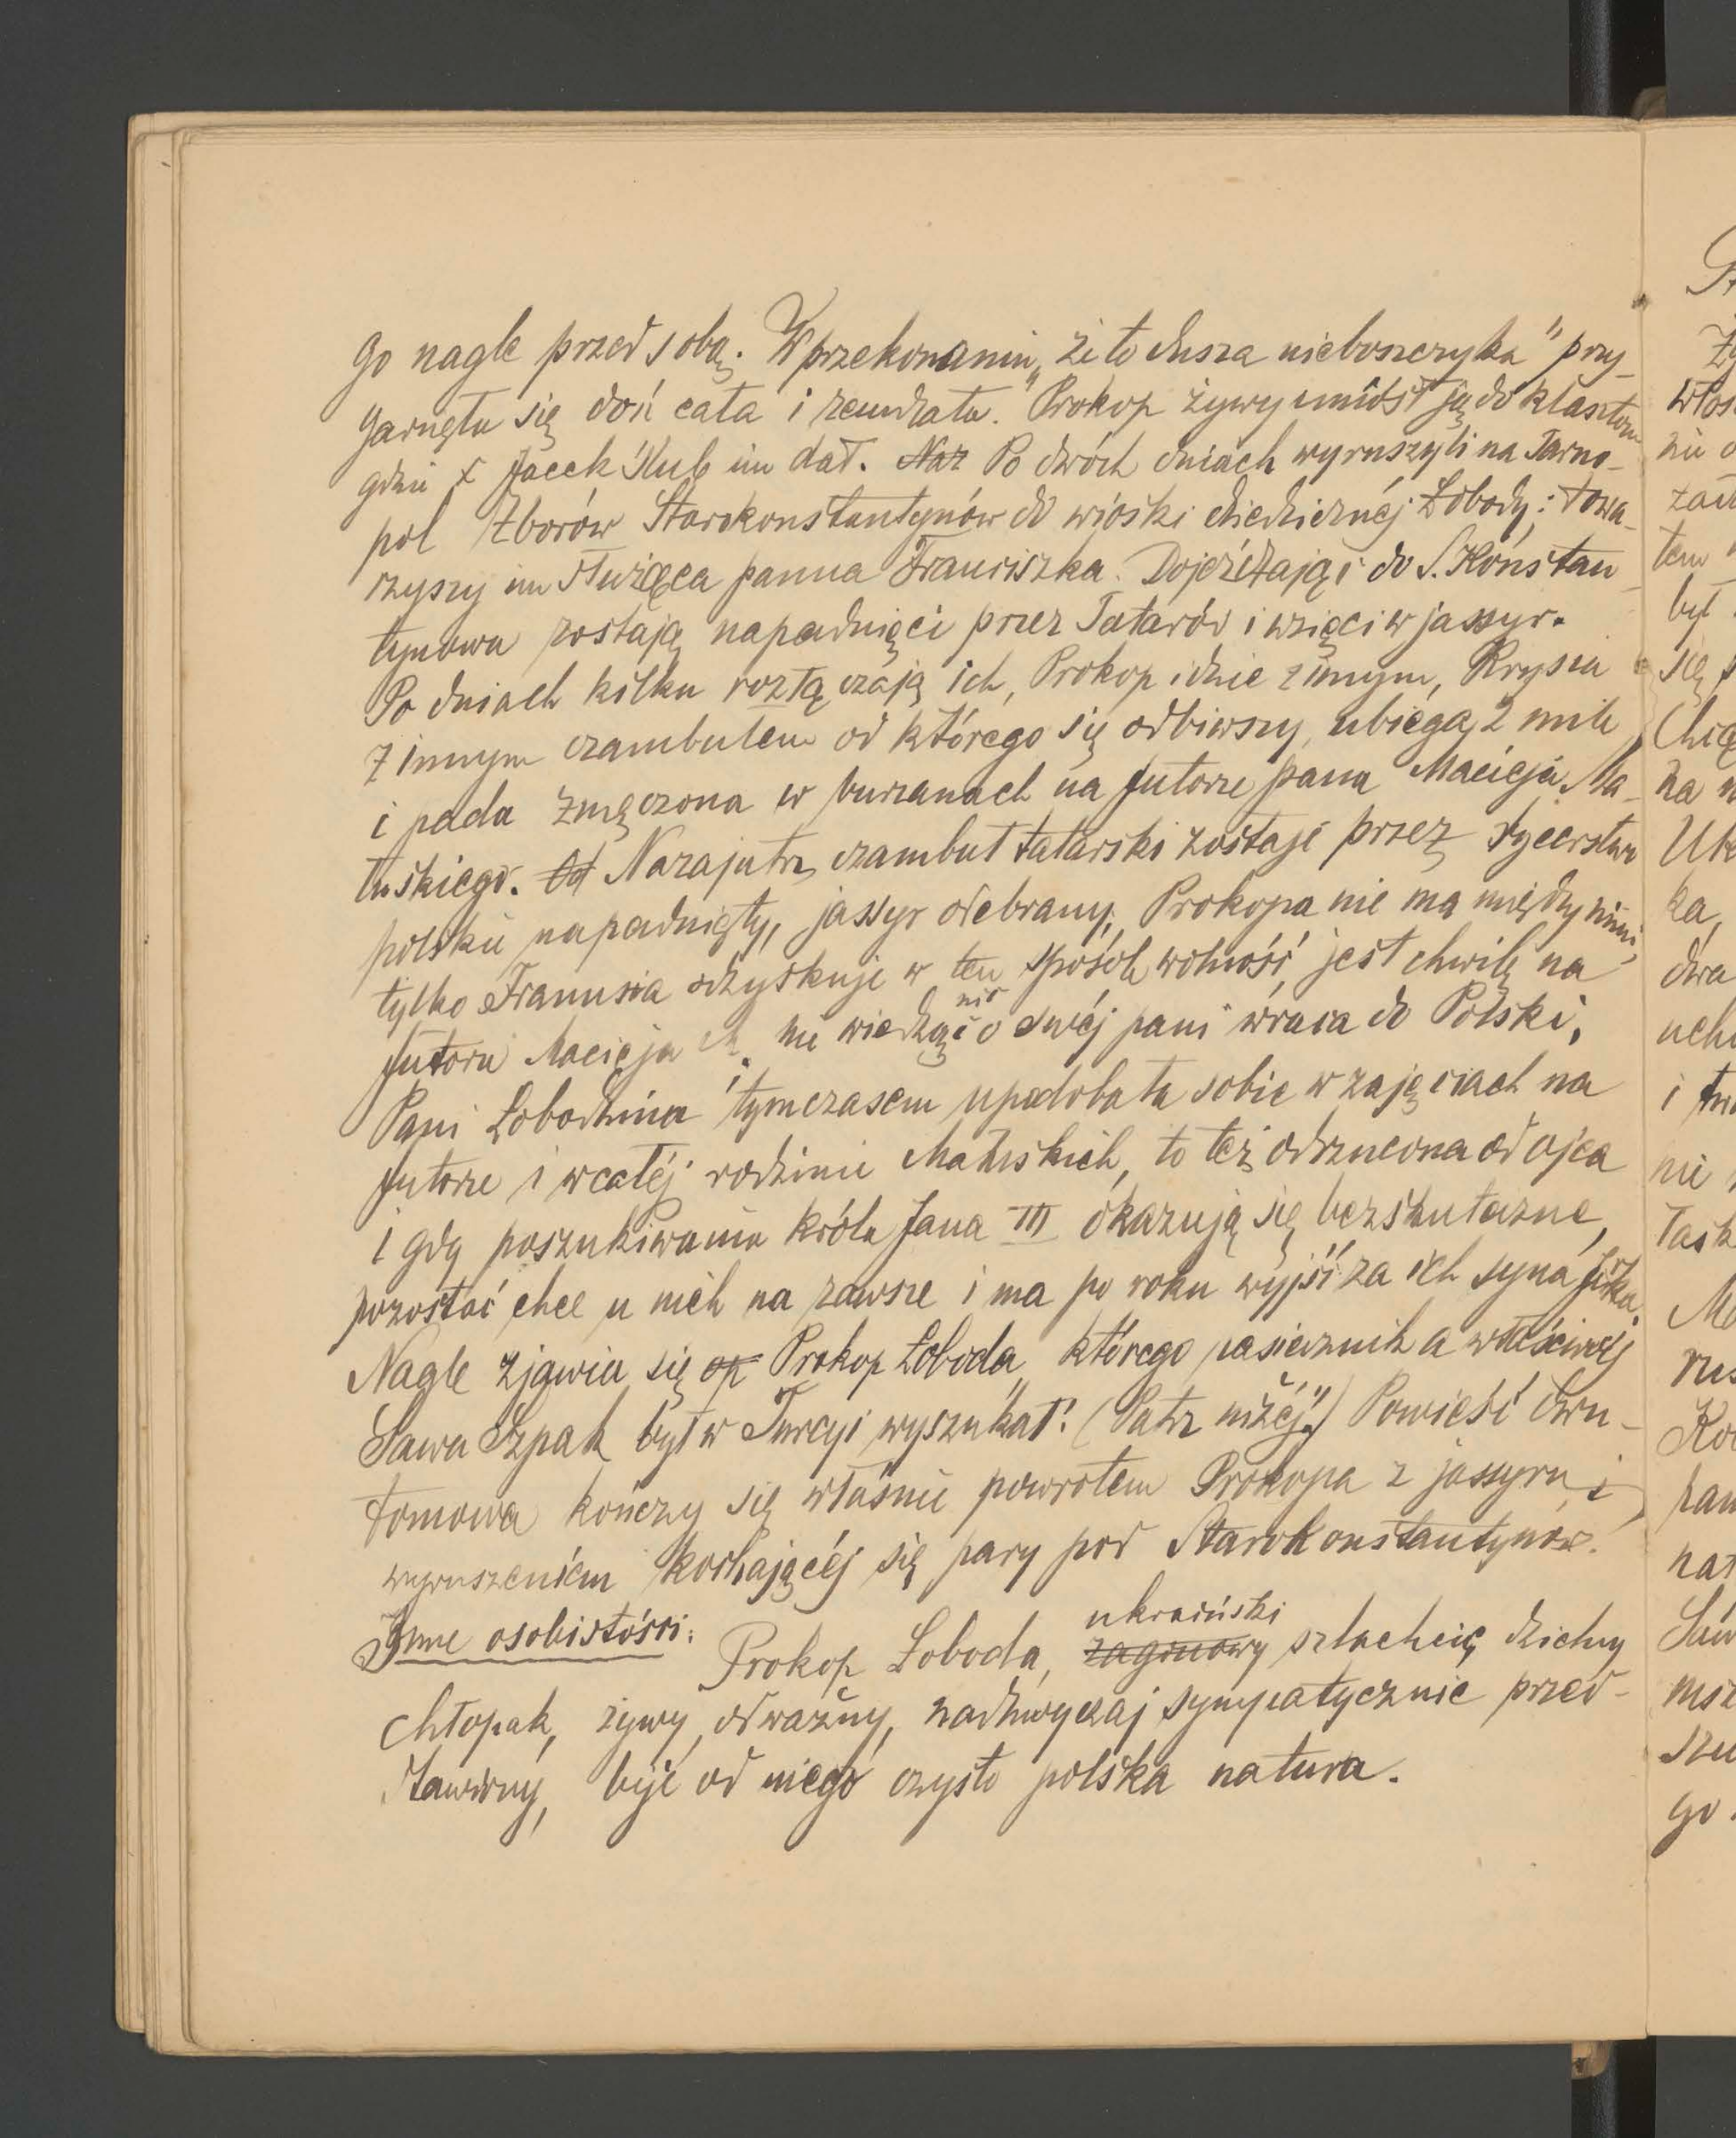 go nagle przed sobą. W przekonaniu „że to dusza nieboszczyka" przy-
garnęła się doń cała i zemdlała. Prokop żywy uniósł ją do klasztoru
gdzie x Jacek ślub im dał. Naz Po dwóch dniach wyruszyli na Tarno-
pol Zborów Starokonstantynów do wioski dziedzicznéj Łobody; towa-
rzyszy im służąca panna Franciszka. Dojeżdżając do S. Konstan-
tynowa zostają napadnięci przez Tatarów i wzięci w jassyr.
Po dniach kilku rozłączają ich, Prokop idzie z innym, Krysia
z innym czambułem od którego się odbiwszy, ubiega 2 mile
i pada zmęczona w burzanach na futorze pana Macieja Ma-
tuskiego. Od Nazajutrz czambuł tatarski zostaje przez rycerstwo
polskie napadnięty, jassyr odebrany, Prokopa nie ma między nimi,
tylko Franusia odzyskuje w ten sposób wolność, jest chwilę na
futorze Macieja M. nie wiedząc nic o swéj pani wraca do Polski.
Pani Łobodzina tymczasem upodobała sobie w zajęciach na
futorze i w całéj rodzinie Matuskich, to też odrzucona od ojca
i gdy poszukiwania króla Jana III okazują się bezskuteczne,
pozostać chce u nich na zawsze i ma po roku wyjść za ich syna
Nagle zjawia się op Prokop Łoboda, którego pasiecznik a właściwiej
Sawa Szpak był w Turcyi wyszukał. (Patrz niżéj") Powieść dwu-
tomowa kończy się właśnie powrotem Prokopa z jassyru i
wyruszeniem kochającéj się pary pod Starokonstantynów.
Inne osobistości: Prokop Łoboda, zagonowy ukraiński szlachcic, dzielny
chłopak, żywy, odważny, nadzwyczaj sympatycznie przed-
stawiony, bije od niego czysto polska natura.